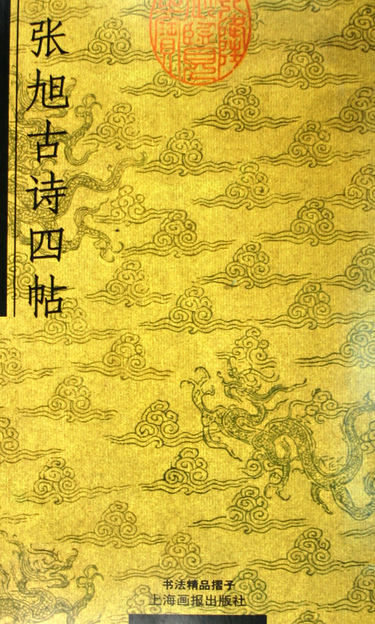 张旭古诗四帖
书法精品摺子
上海画报出版社